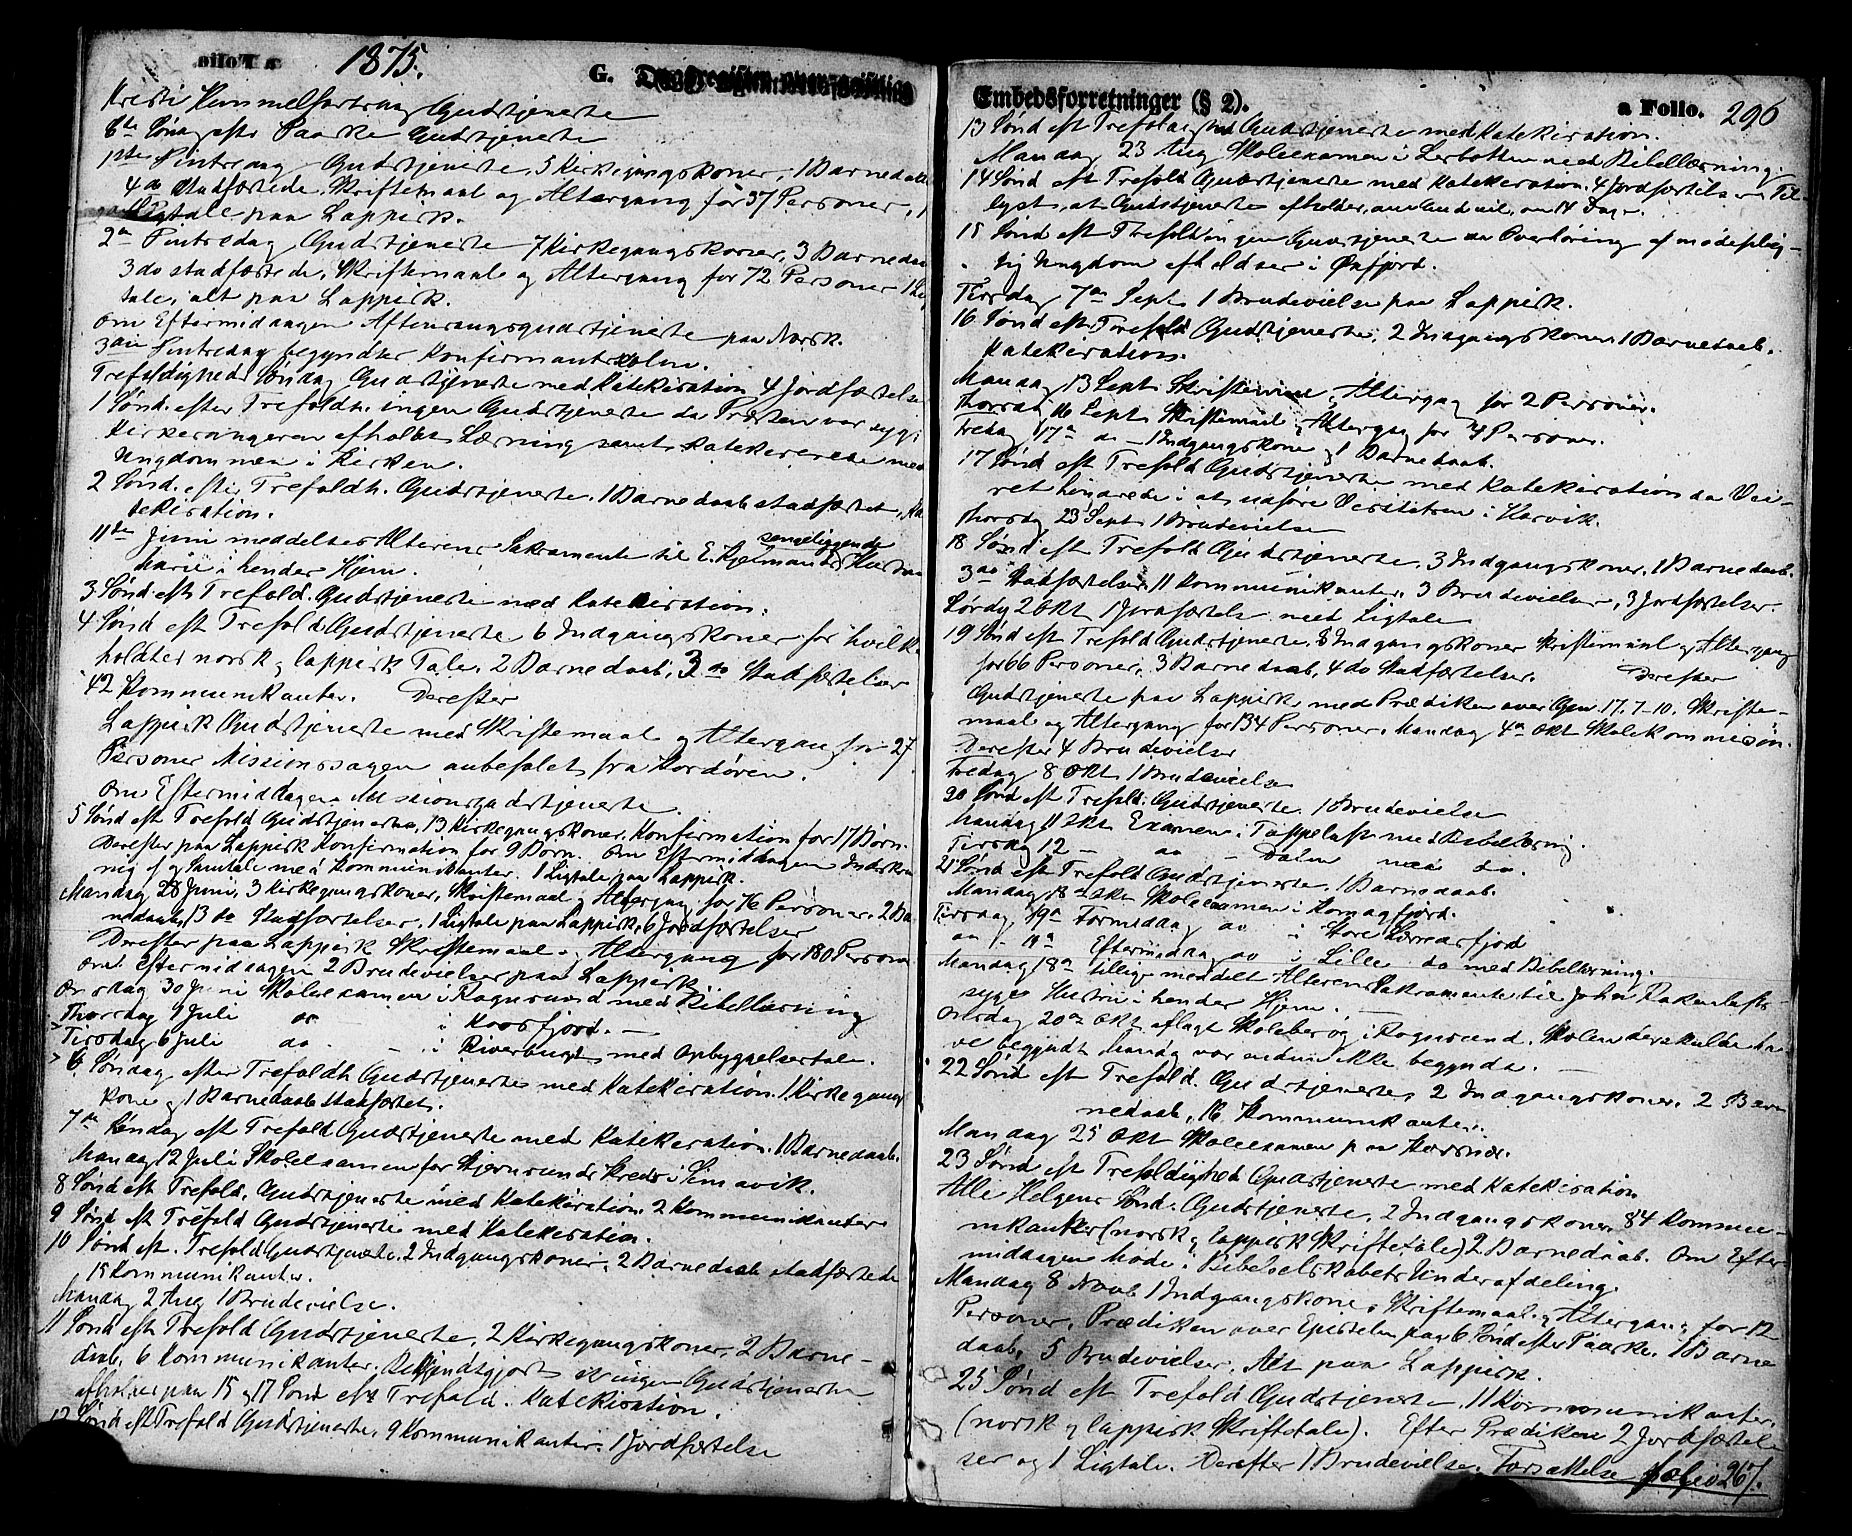 a Folio
1875.
G.
Kristi Himmelfartsdag Gudstjeneste
6te Søndag efter Paaske Gudstjeneste
1ste Pintsedag Gudstjeneste, 5 Kirkegangskoner, 1 Barnedaab
4 do stadfæstede, Skriftemaal og Altergang for 37 Personer, 1
Ligtale paa Lappisk.
2den Pintsedag Gudstjeneste 7 Kirkegangskoner, 3 Barnedaab
3 do stadfæstede, Skriftemaal og Altergang for 72 Personer 1 Lig
tale, alt paa Lappisk.
Om Eftermiddagen Aftensangsgudstjeneste paa Norsk.
3die Pintsedag begyndtes Konfirmantskolen.
Trefoldigheds Søndag Gudstjeneste med Katekisation 4 Jordfæstelser
1 Sønd. efter Trefoldh. ingen Gudstjeneste da Præsten var syg;
Kirkesangeren afholdt Læsning samt katekiserede med
Ungdommen i Kirken.
2 Sønd. efter Trefoldh. Gudstjeneste, 1 Barnedaab stadfæstet, Ka
tekisation.
11te Juni meddeltes Alterens Sakramente til E. Kjelmands sengeliggende Hustru
Marie i hendes Hjem.
3 Sønd eft Trefold. Gudstjeneste med Katekisation.
4 Sønd eft Trefold Gudstjeneste 6 Indgangskoner for hvilke
holdtes norsk og lappisk Tale, 2 Barnedaab, 3 do Stadfæstelser
42 Kommunikanter. Derefter
Lappisk Gudstjeneste med Skriftemaal og Altergang for 27
Personer Missionssagen anbefalet fra Kordøren.
Om Eftermiddagen Missionsgudstjeneste.
5 Sønd eft Trefold Gudstjeneste, 13 Kirkegangskoner, Konfirmation for 17 Børn.
Derefter paa Lappisk Konfirmation for 9 Børn. Om Eftermiddagen Indskriv
ning af og Samtale med Kommunikanter. 1 Ligtale paa Lappisk.
Mandag 28 Juni, 3 Kirkegangskoner, Skriftemaal og Altergang for 76 Personer, 2 Bar
nedaab, 13 do Stadfæstelser, 1 Ligtale paa Lappisk, 6 Jordfæstelser
Derefter paa Lappisk Skriftemaal og Altergang for 180 Personer
om Eftermiddagen 2 Brudevielser paa Lappisk.
Onsdag 30 Juni Skoleexamen i Rognsund med Bibellæsning
Thorsdag 1 Juli do — i Koosfjord. —
Tirsdag 6 Juli do — i Riverbugt med Opbyggelsestale.
6 Søndag efter Trefoldh Gudstjeneste med Katekisation. 1 Kirkegangs
kone og 1 Barnedaab stadfæstet.
7de Søndag eft Trefold Gudstjeneste med Katekisation. 1 Barnedaab.
Mandag 12 Juli Skoleexamen for Stjernsunds Kreds i Simavik.
8 Sønd eft Trefold, Gudstjeneste med Katekisation 2 Kommunikanter
9 Sønd eft Trefold Gudstjeneste med Katekisation.
10 Sønd eft. Trefold Gudstjeneste. 2 Indgangskoner, 2 Barnedaab stadfæstede
15 Kommunikanter.
Mandag 2 Aug 1 Brudevielse.
11 Sønd eft Trefold Gudstjeneste, 2 Kirkegangskoner, 2 Barne-
daab, 6 Kommunikanter. Bekjendtgjort at ingen Gudstjeneste
afholdes paa 15 og 17 Sønd eft Trefold. Katekisation.
12 Sønd eft Trefold Gudstjeneste, 9 Kommunikanter, 1 Jordfæstelse
Embedsforretninger (§ 2).
a Folio. 296
13 Sønd eft Trefoldighed Gudstjeneste med Katekisation.
Mandag 23 Aug Skoleexamen i Lerbotten med Bibellæsning
14 Sønd eft Trefold Gudstjeneste med Katekisation. 4 Jordfæstelser Til
lyst, at Gudstjeneste afholdes, om Gud vil, om 14 Dage.
15 Sønd eft Trefold ingen Gudstjeneste da Overhøring af mødeplig-
tig Ungdom afholdtes i Øxfjord.
Tirsdag 7de Sept 1 Brudevielse paa Lappisk.
16 Sønd efter Trefold Gudstjeneste, 2 Indgangskoner 1 Barnedaab.
Katekisation.
Mandag 13 Sept. Skriftemaal, Altergang for 2 Personer.
Thorsdag 16 Sept Skriftemaal Altergang for 4 Personer.
Fredag 17de do — 1 Indgangskone og 1 Barnedaab.
17 Sønd eft Trefold Gudstjeneste med Katekisation da Vei-
ret hindrede i at udføre Visitatsen i Hasvik.
Thorsdag 23 Sept 1 Brudevielse
18 Sønd eft Trefold Gudstjeneste, 3 Indgangskoner, 1 Barnedaab.
3 do Stadfæstelser, 11 Kommunikanter, 3 Brudevielser, 3 Jordfæstelser.
Lørdag 2 Okt 1 Jordfæstelse med Ligtale
19 Sønd eft Trefold Gudstjeneste, 8 Indgangskoner Skriftemaal og Altergang
for 66 Personer, 3 Barnedaab, 4 do Stadfæstelser. Derefter
Gudstjeneste paa Lappisk med Prædiken over Gen 17. 7-10. Skrifte-
maal og Altergang for 134 Personer. Mandag 4de Okt Skolekommission.
Derefter 4 Brudevielser
Fredag 8 Okt 1 Brudevielse
20 Sønd eft Trefold. Gudstjeneste. 1 Brudevielse
Mandag 11 Okt Examen i Tappeluft med Bibellæsning
Tirsdag 12 — do — Dalen med do.
21 Sønd eft Trefold Gudstjeneste, 1 Barnedaab.
Mandag 18de Okt Skoleexamen i Komagfjord.
Tirsdag 19de Formiddag do i Store Lerresfjord
do — 19de Eftermiddag do i Lille do med Bibellæsning.
Mandag 18de tillige meddelt Alterens Sakramente til John Rakenlufts
syge Hustru i hendes Hjem. —
Onsdag 20de Okt aflagt Skolebesøg i Rognsund. Skolen der skulde ha-
ve begyndt Mandag var endnu ikke begyndt. —
22 Sønd eft Trefold. Gudstjeneste, 2 Indgangskoner. 2 Bar
nedaab, 16 Kommunikanter.
Mandag 25 Okt Skoleexamen paa Korsnæs.
23 Sønd eft Trefoldighed Gudstjeneste med Katekisation
Alle Helgens Sønd. Gudstjeneste, 2 Indgangskoner 84 Kommu-
nikanter (norsk og lappisk Skriftetale) 2 Barnedaab. Om Efter
middagen Møde i Bibelselskabets Underafdeling.
Mandag 8 Novb 1 Indgangskone, Skriftemaal og Altergang for 12
Personer, Prædiken over Epistelen paa 6 Sønd efter Paaske. 1 Barne
daab, 5 Brudevielser, Alt paa Lappisk.
25 Sønd eft Trefold Gudstjeneste 11 Kommunikanter.
(norsk og lappisk Skriftetale). Efter Prædiken 2 Jordfæstel
ser og 1 Ligtale. Derefter 1 Brudevielse. Forsættelse folio 267.